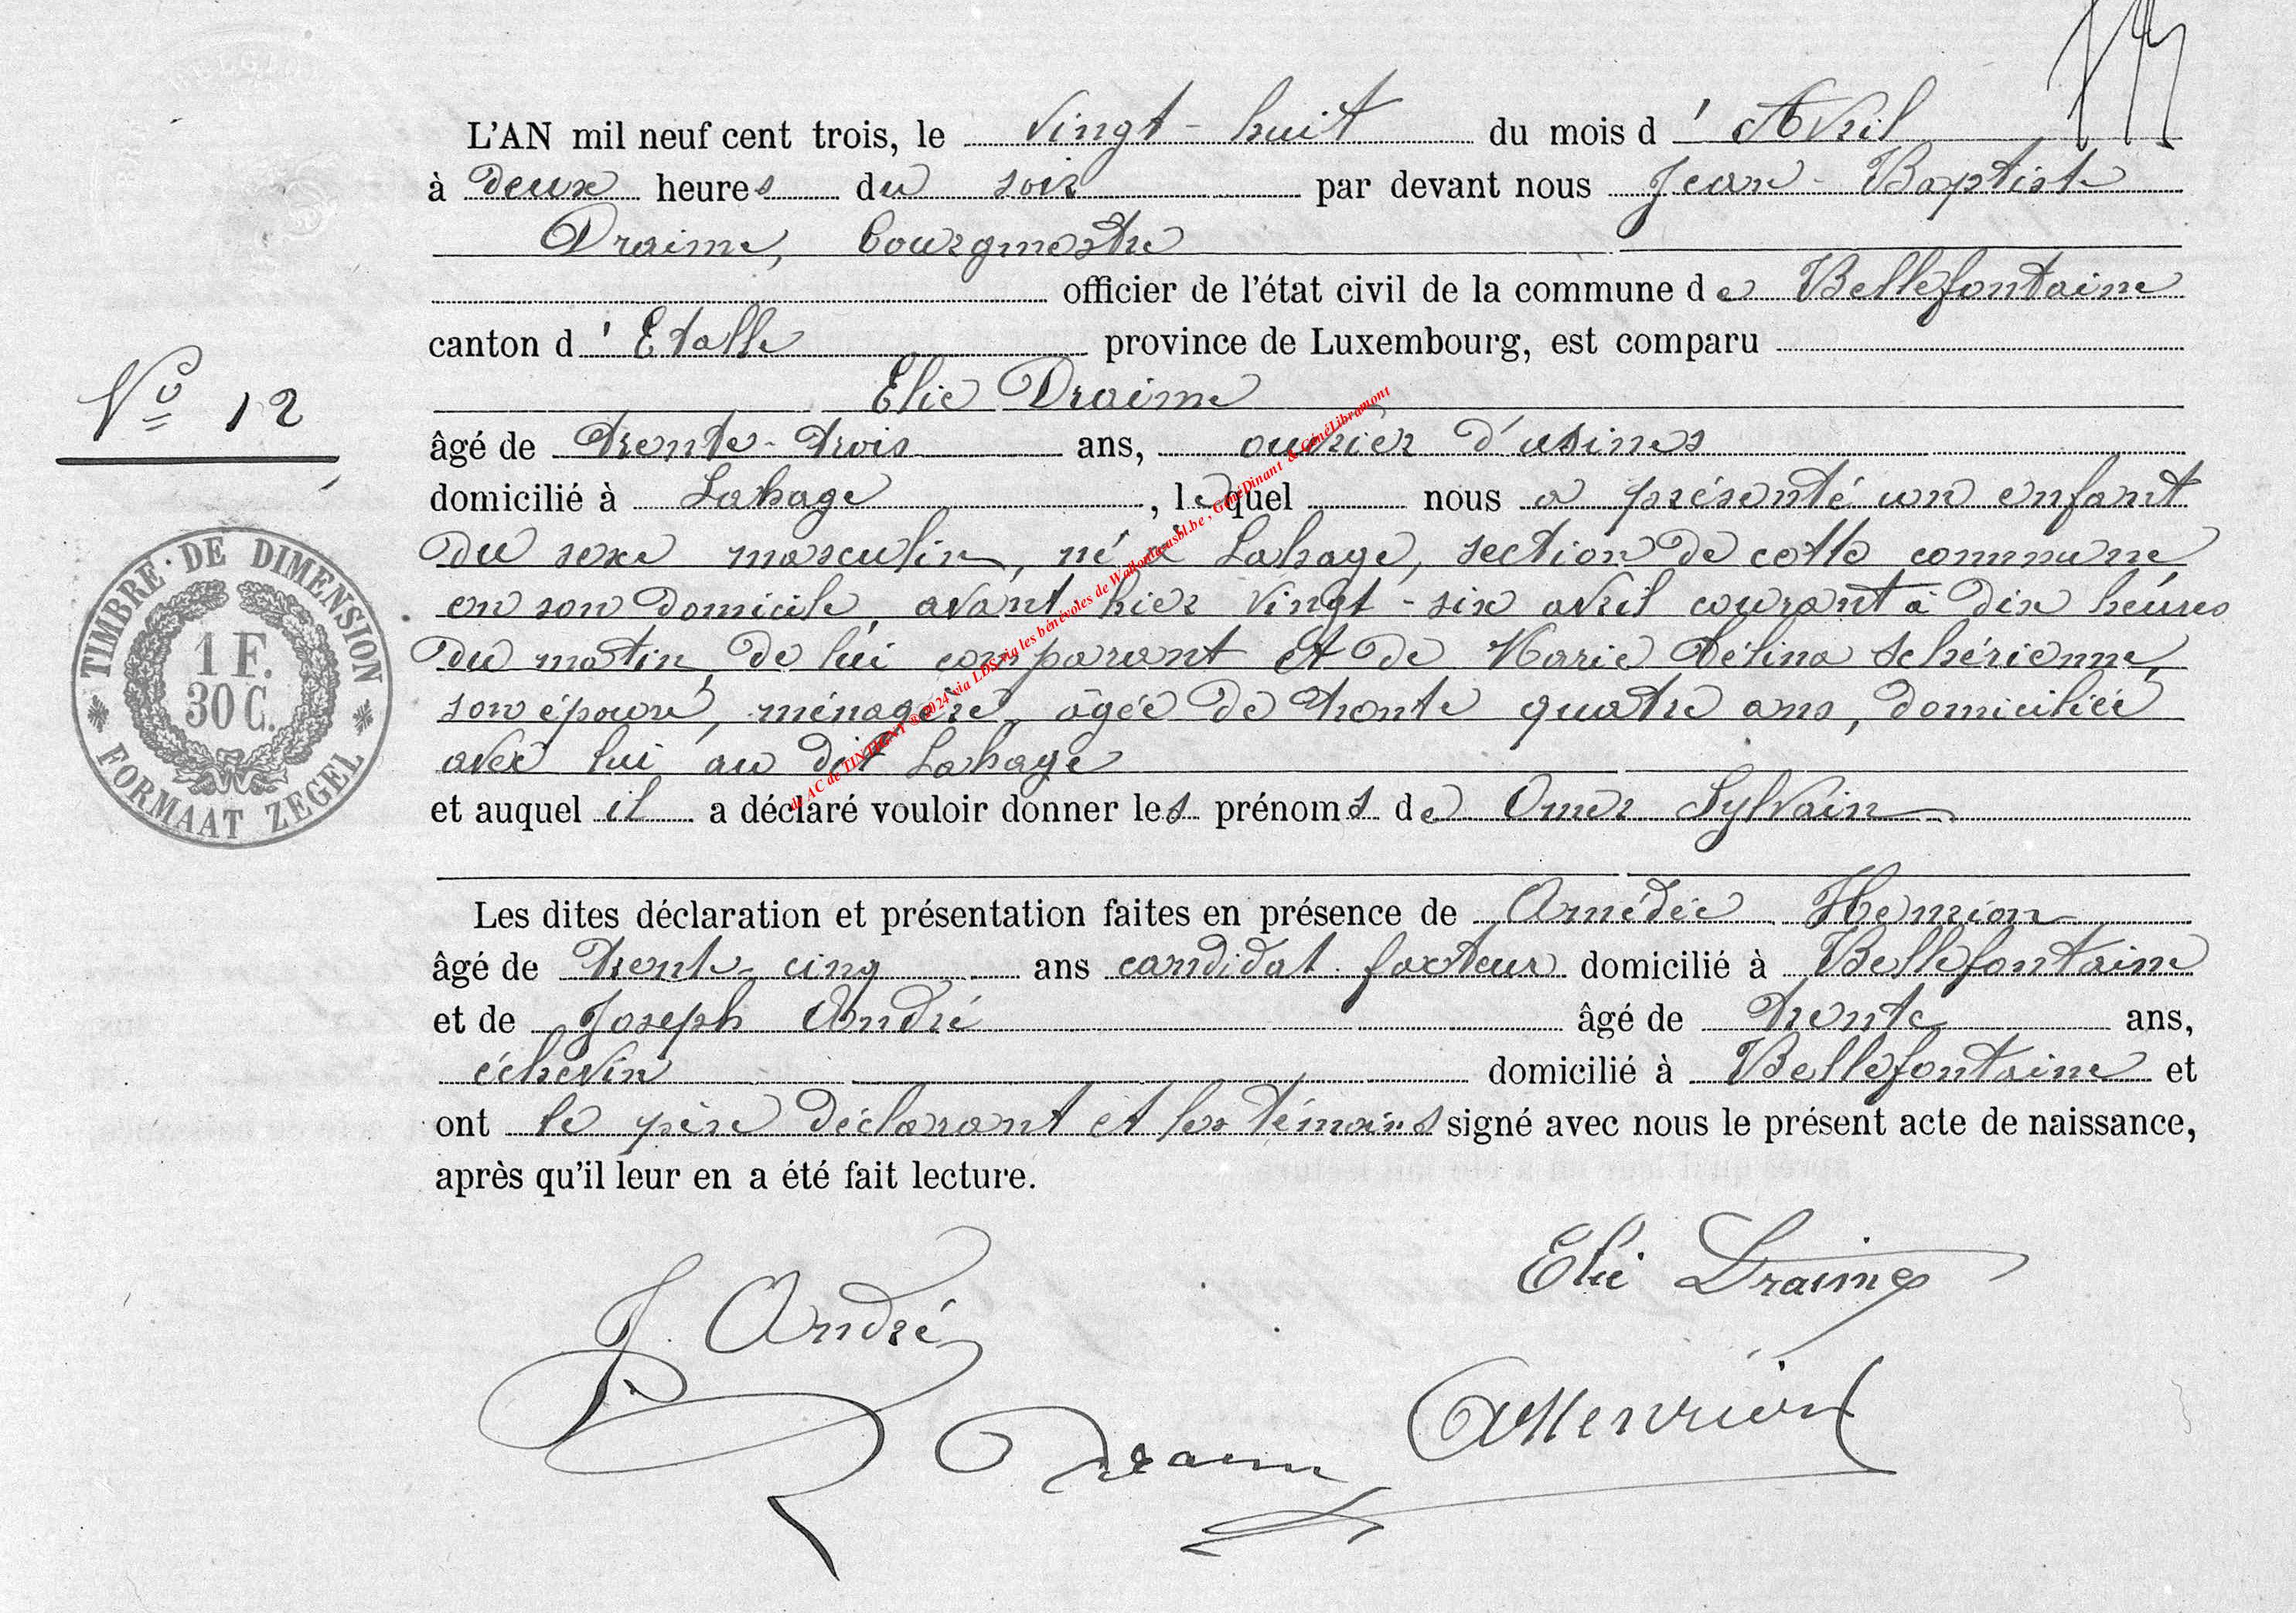 L'AN mil neuf cent trois, le vingt-huit du mois d'Avril
à deux heures du soir par devant nous Jean-Baptiste
Draime, bourgmestre
officier de l'état civil de la commune de Bellefontaine
canton d'Etalle province de Luxembourg, est comparu
Elie Draime
N° 12
âgé de trente-trois ans, ouvrier d'usines
domicilié à Lahage, lequel nous a présenté un enfant
du sexe masculin, né à Lahage, section de cette commune
en son domicile, avant hier vingt-six avril courant à dix heures
du matin, de lui comparant et de Marie Délina Schérienne,
son épouse, ménagère, âgée de trente quatre ans, domiciliée
avec lui au dit Lahage
et auquel il a déclaré vouloir donner les prénoms de Omer Sylvain
TIMBRE · DE DIMENSION
1 F.
30 C.
FORMAAT ZEGEL
Les dites déclaration et présentation faites en présence de Amédée Henrion
âgé de trente-cinq ans candidat facteur domicilié à Bellefontaine
et de Joseph André âgé de trente ans,
échevin domicilié à Bellefontaine et
ont le père déclarant et les témoins signé avec nous le présent acte de naissance,
après qu'il leur en a été fait lecture.
Elie Draime
J. André
AHenrion
Draime